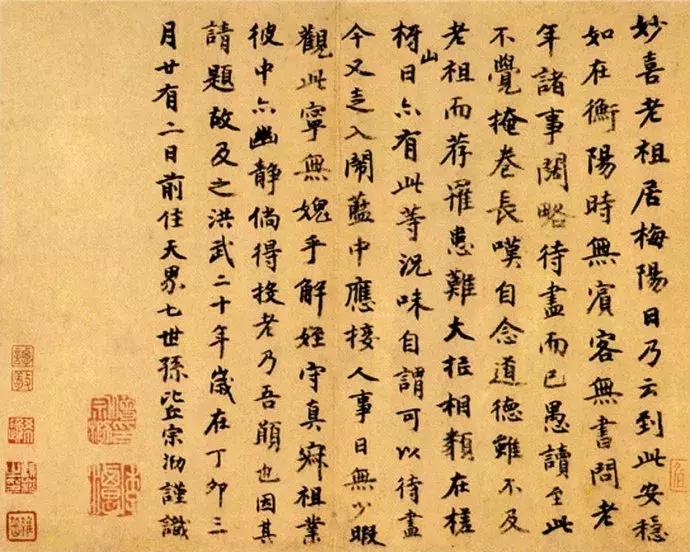 妙喜老祖居梅陽日乃云到此安穩
如在衡陽時無賓客無書問老
年諸事闊略待盡而已愚讀至此
不覺掩卷長嘆自念道德雖不及
老祖而荐罹患難大抵相類在槎
枒山日亦有此等況味自謂可以待盡
今又走入鬧藍中應接人事日無少暇
觀此寧無媿乎解姪守真寂祖業
彼中亦幽靜倘得投老乃吾願也因其
請題故及之洪武二十年歲在丁卯三
月廿有二日前住天界七世孫比丘宗泐謹識